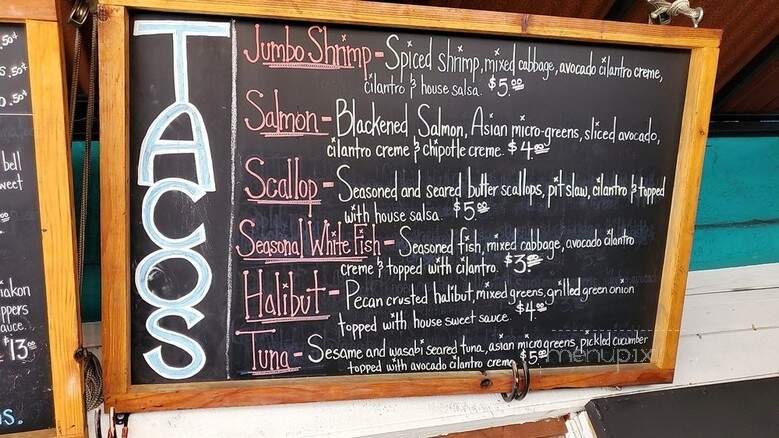 TACOS
Jumbo Shrimp - Spiced shrimp, mixed cabbage, avocado cilantro creme,
cilantro & house salsa. $5.00
Salmon - Blackened Salmon, Asian micro-greens, sliced avocado,
cilantro creme & chipotle creme. $4.00
Scallop - Seasoned and seared butter scallops, pit slaw, cilantro & topped
with house salsa. $5.00
Seasonal White Fish - Seasoned fish, mixed cabbage, avocado cilantro
creme & topped with cilantro. $3.00
Halibut - Pecan crusted halibut, mixed greens, grilled green onion
topped with house sweet sauce. $4.00
Tuna - Sesame and wasabi seared tuna, asian microgreens, pickled cucumber
topped with avocado cilantro creme $5.00
menupix
.50¢
.50¢
bell
weet
iakon
ppers
auce.
$13.00
s.